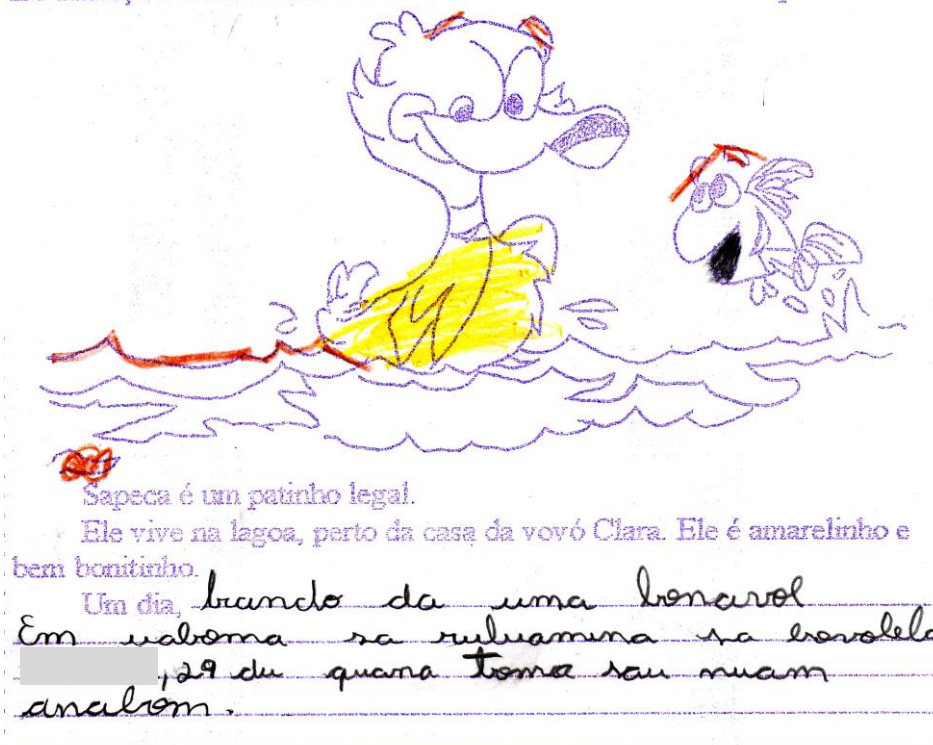 Sapeca é um patinho legal.
Ele vive na lagoa, perto da casa da vovó Clara. Ele é amarelinho e
bem bonitinho.
Um dia, brando da uma bonarol
Em uaboma sa ruluamina sa
,29 du quana toma sau nuam
anabom.